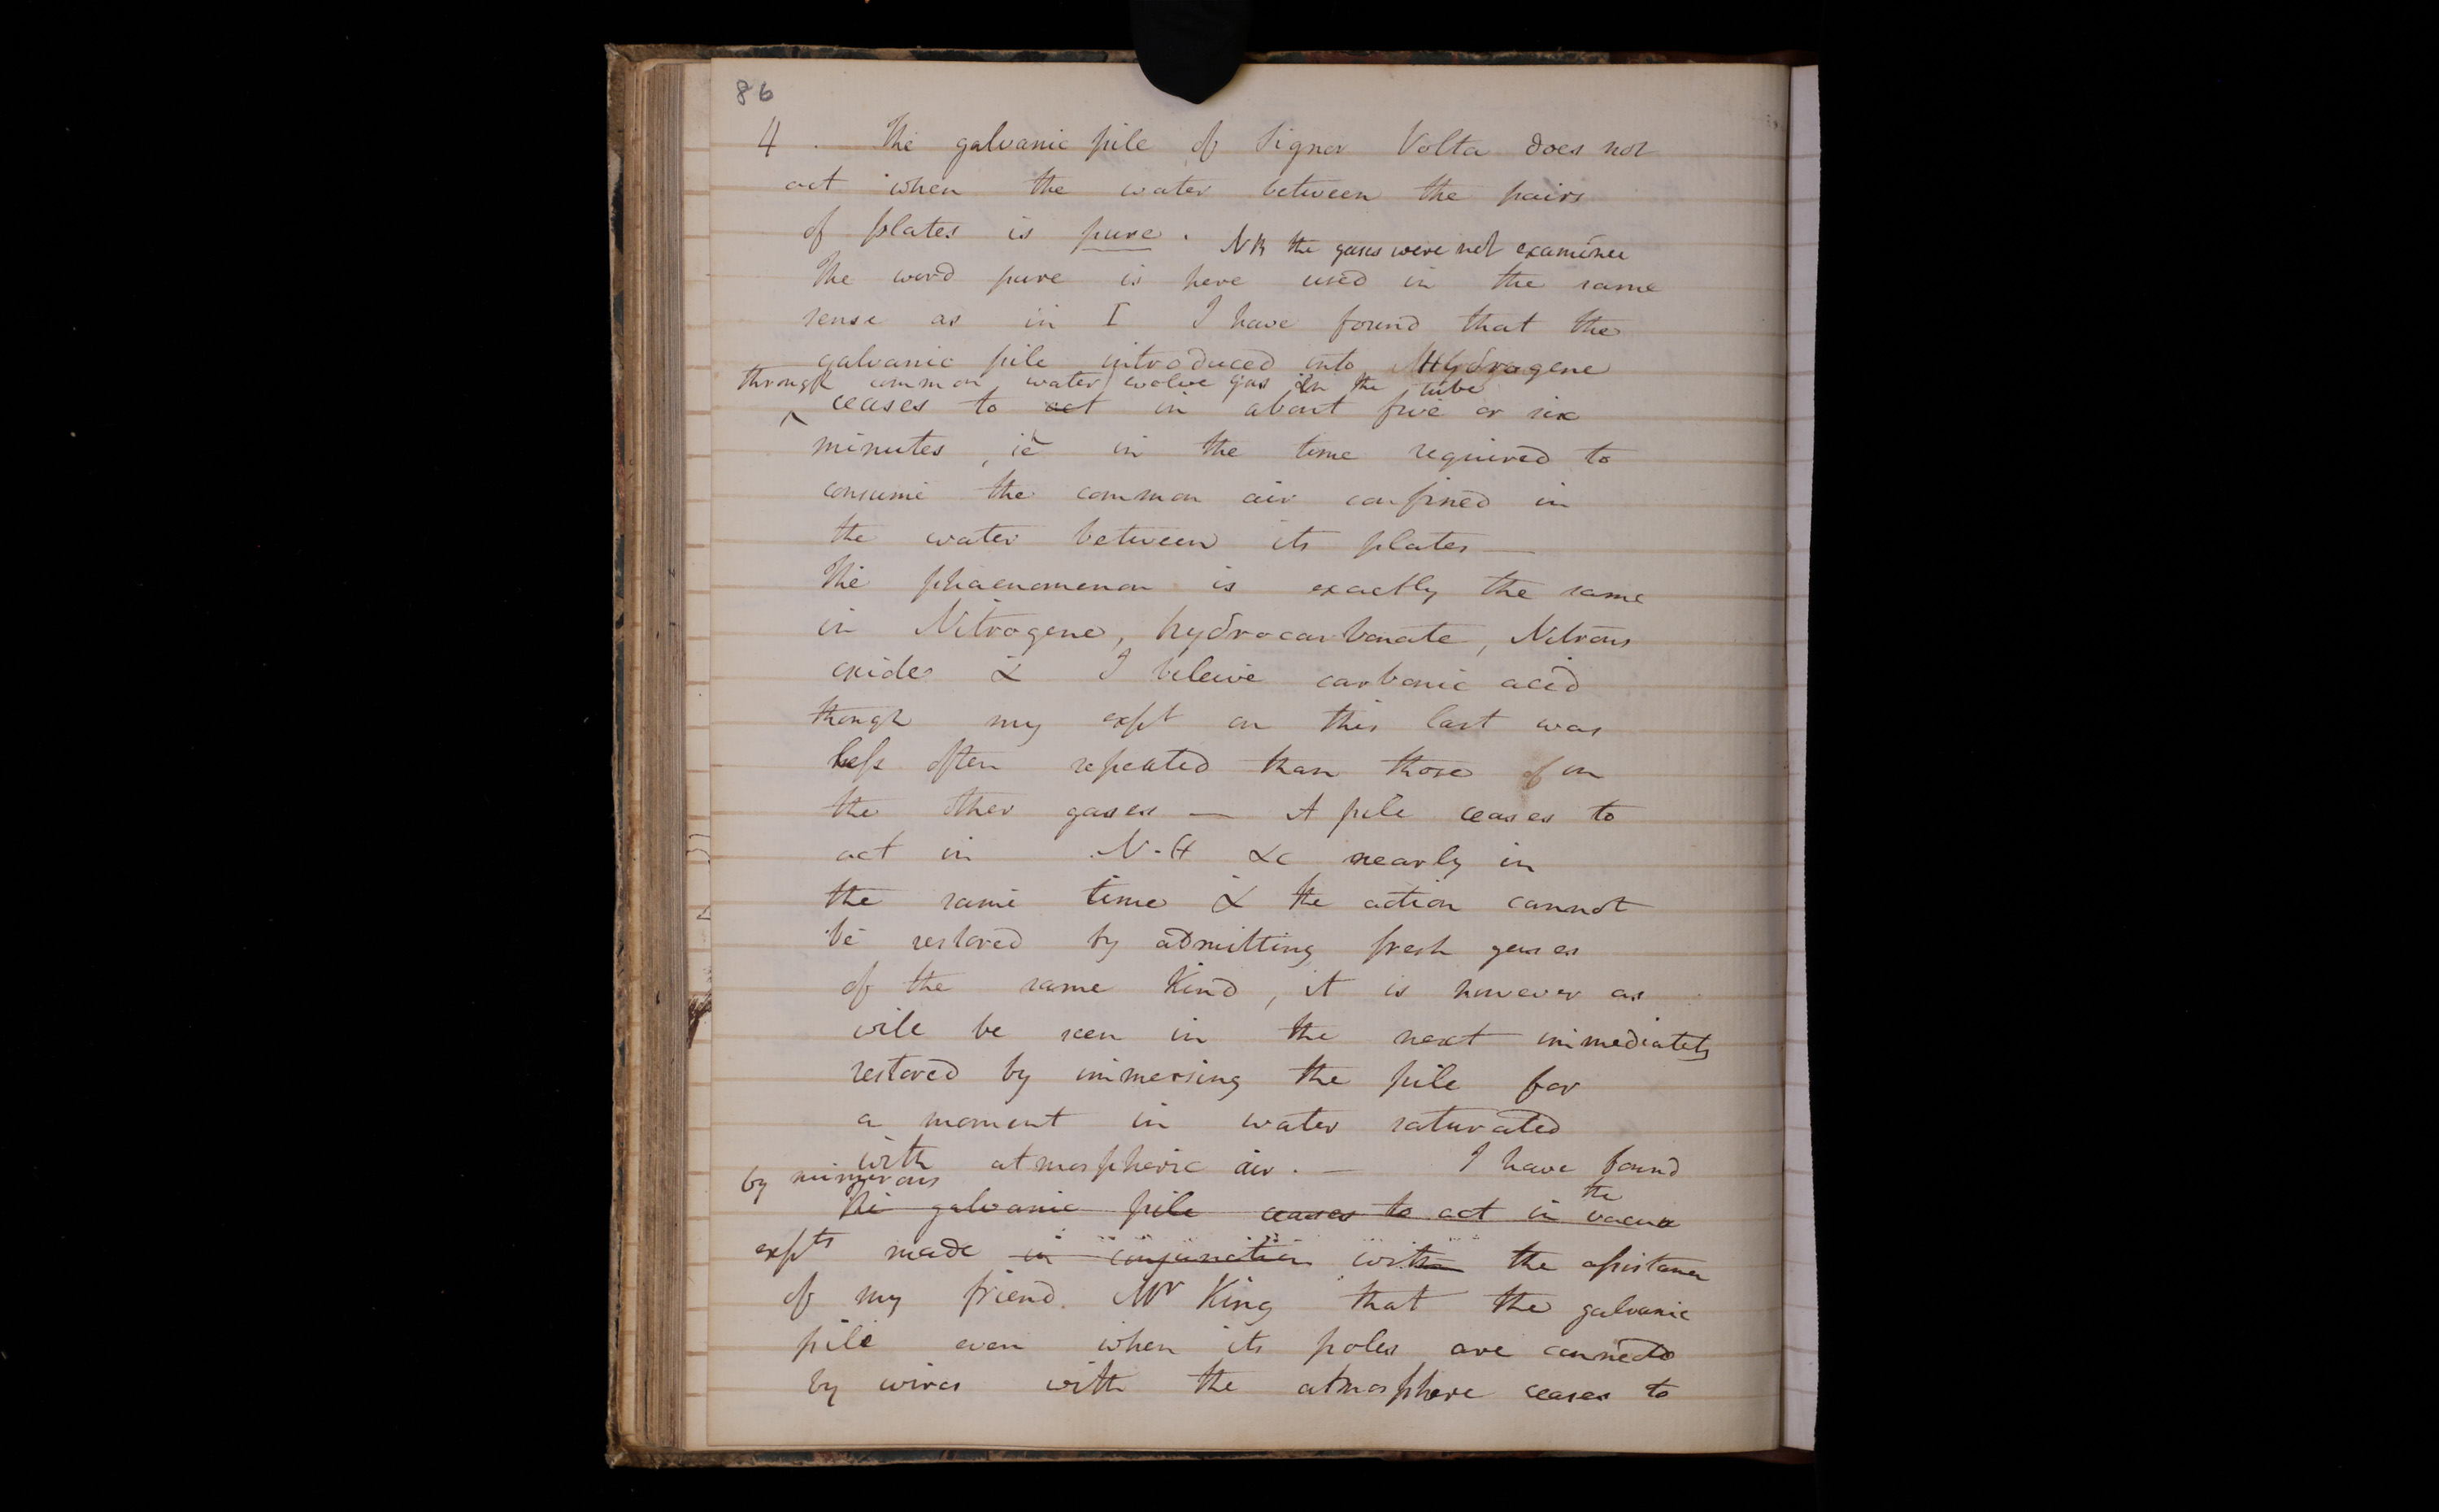 86
4 . The galvanic pile of Signor Volta does not
act when the water between the pairs
of plates is pure . NB the gases were not examined
The word pure is here used in the same
sense as in I I have found that the
galvanic pile introduced into Hydrogene
through common water evolve gas in the tube
ceases to act in about five or six
minutes , ie in the time required to
consume the common air confined in
the water between its plates —
The phaenomenon is exactly the same
in Nitrogene, hydrocarbonate, Nitrous
oxide & I beleive carbonic acid
though my expt on this last was
less often repeated than those of on
the other gases — A pile ceases to
act in N - H &c nearly in
the same time & the action cannot
be restored by admitting fresh gases
of the same Kind , it is however as
will be seen in the next immediately
restored by immersing the pile for
a moment in water saturated
with atmospheric air . — I have found
by numerous
the
The galvanic pile ceases to act in vacuo
expts made in conjunction with the assistance
of my friend Mr King that the galvanic
pile even when its poles are connected
by wires with the atmosphere ceases to